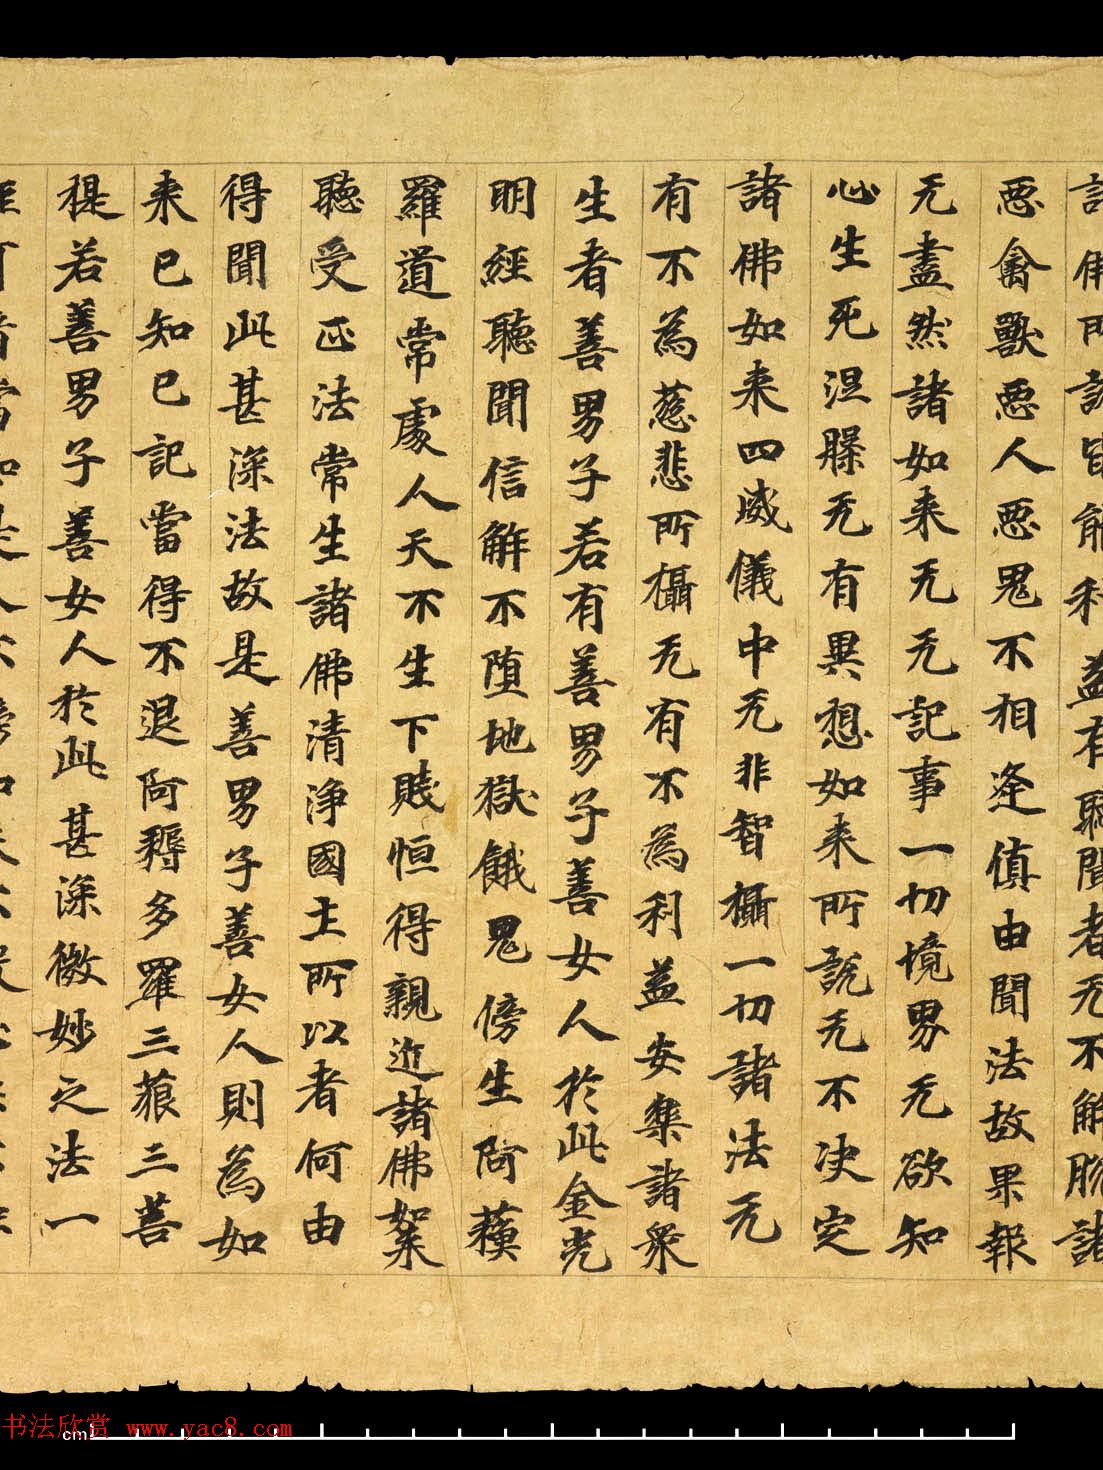 諸佛所說皆能利益有聽聞者无不解脫諸
惡禽獸惡人惡鬼不相逢值由聞法故果報
无盡然諸如来无无記事一切境界无欲知
心生死涅槃无有異想如来所說无不決定
諸佛如来四威儀中无非智攝一切諸法无
有不為慈悲所攝无有不為利益安樂諸衆
生者善男子若有善男子善女人於此金光
明經聽聞信解不堕地獄餓鬼傍生阿蘇
羅道常處人天不生下賤恒得親近諸佛如来
聽受正法常生諸佛清淨國土所以者何由
得聞此甚深法故是善男子善女人則為如
来已知已記當得不退阿耨多羅三藐三菩
提若善男子善女人於此甚深微妙之法一
者當知是人不謗如来不毀
书法欣赏 www.yac8.com
cm